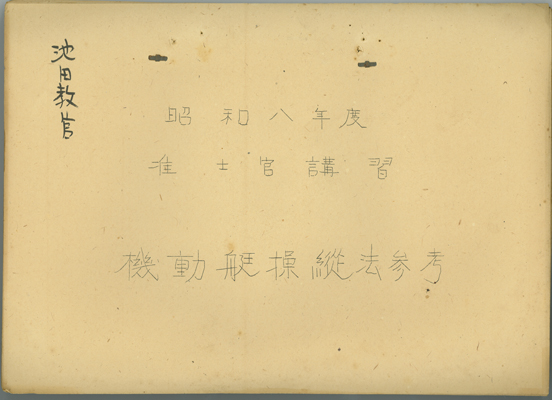 池田教官
昭和八年度
准士官講習
機動艇操縱法参考